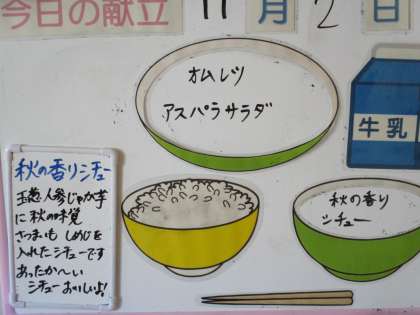 今日の献立 11月2日
オムレツ
アスパラサラダ
牛乳
秋の香りシチュー
玉葱人参じゃが芋
に秋の味覚
さつまいも しめじを
入れたシチューです
あったか〜い
シチューおいしいよ!
秋の香り
シチュー